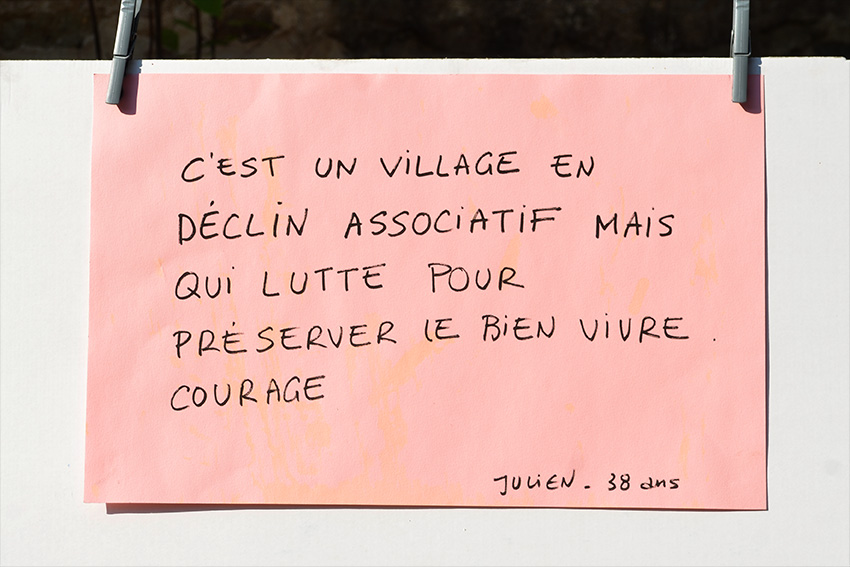 C'EST UN VILLAGE EN
DÉCLIN ASSOCIATIF MAIS
QUI LUTTE POUR
PRÉSERVER LE BIEN VIVRE.
COURAGE
JULIEN - 38 ans